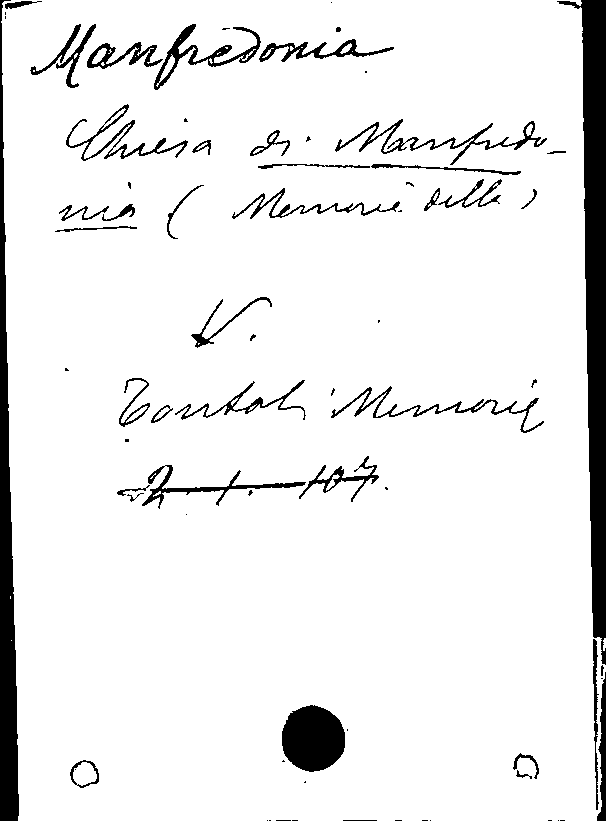 Manfredonia
Chiesa di Manfredo-
nia (Memorie della)
V.
Tontoli Memorie
2. 1. 107.